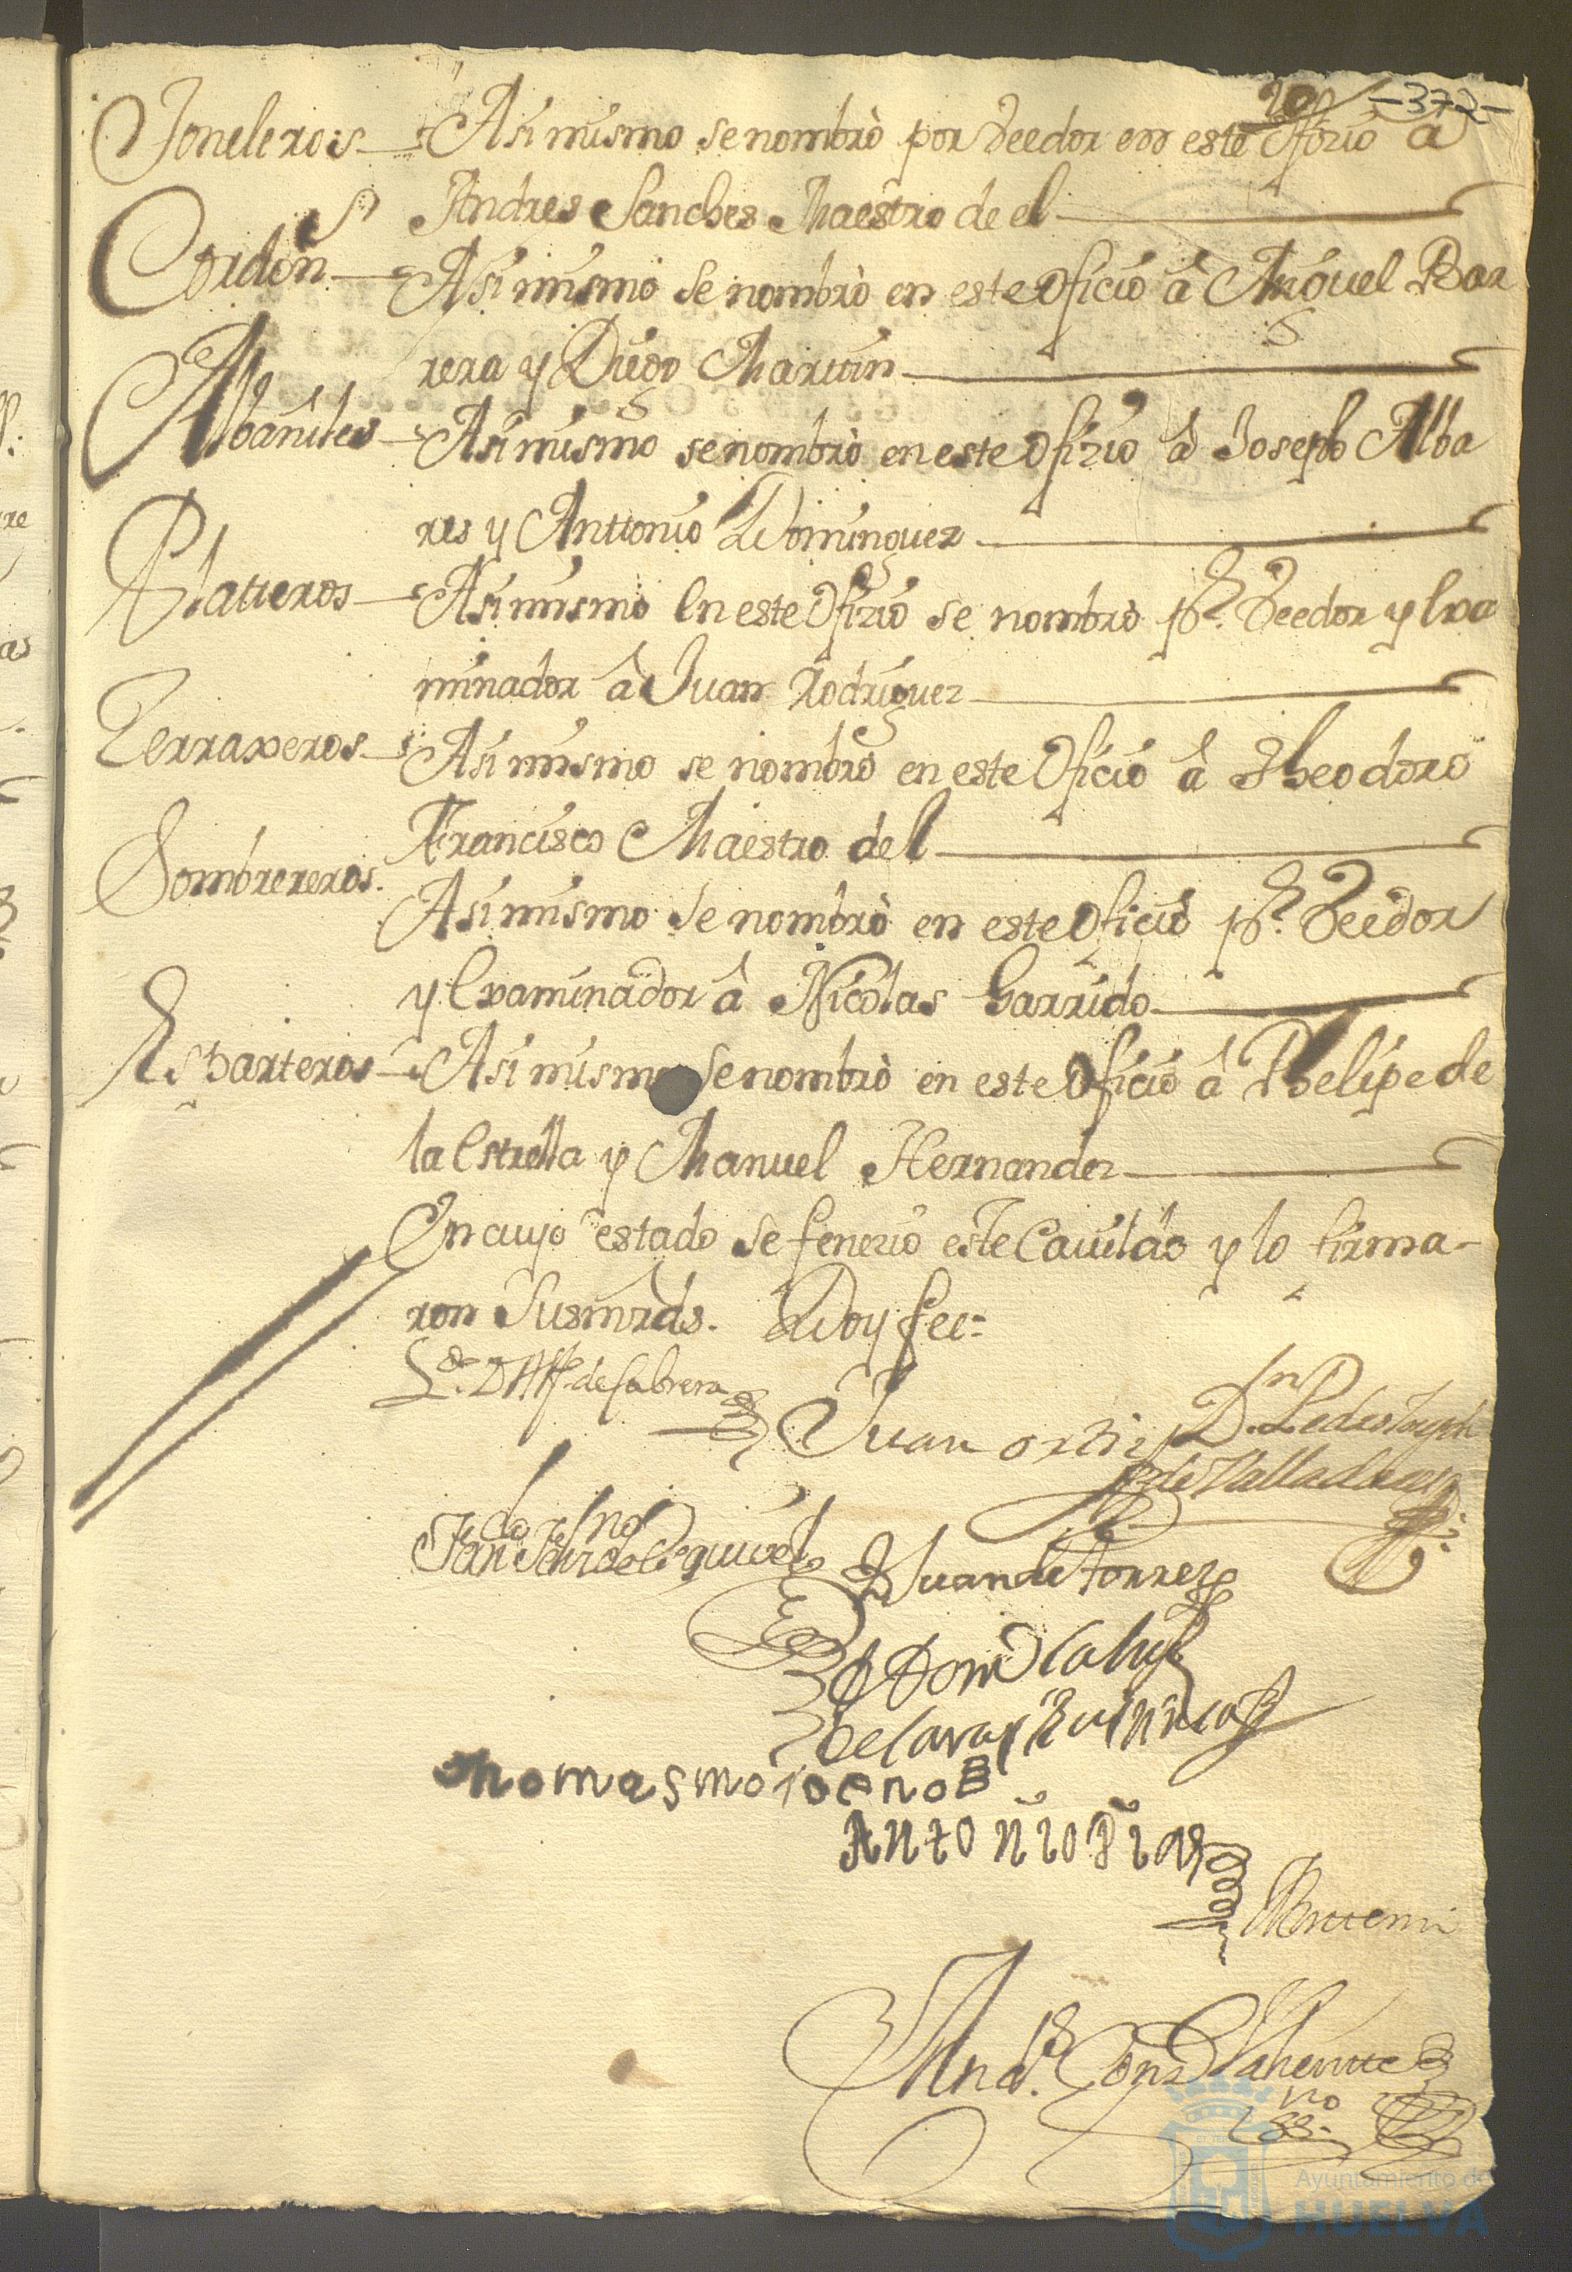 20 -372-
Toneleros - Asi mismo se nombrò por Veedor en este ofizio a
Andres Sanches Maestro de el
Cordon.s - Asi mismo se nombrò en este Oficio â Miguel Bar
rera y Diego Martin
Albañiles - Asi mismo se nombrò en este Ofizio â Joseph Alba
res y Anttonio Dominguez
Platteros - Asi mismo En este Ofizio se nombrò p.r Veedor y Exa
minador â Juan Rodriguez
Zerraxeros - Asi mismo se nombrò en este Oficio â Theodoro
Francisco Maestro del
Sombrereros. Asi mismo Se nombrò en este Oficio p.r Veedor
y Examinador â Nicolas Garrido
Esparteros - Asi mismo Se nombrò en este Oficio â Phelipe de
la Estrella y Manuel Hernandez
En cuyo estado se fenezio este Cavildo y lo firma-
ron Sus mrds. Doy fee=
L.do D Alf.o de Cabrera
Juan ortiz
D.n Pedro Joseph
de Valladares
Juan de torres
Thomas moreno
Antonio Dias
Antte mi
And.s Gonz Valiente
no
ss.
Ayuntamiento de
HUELVA